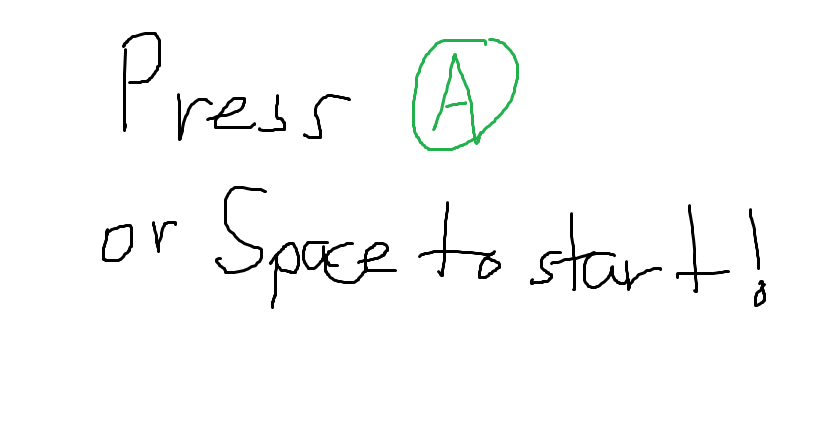 Press A
or Space to start!